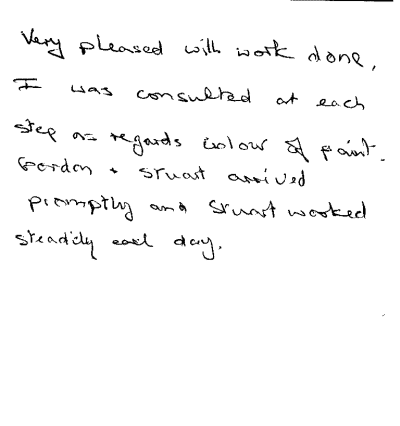 Very pleased with work done,
I was consulted at each
step as regards colour of paint.
Gordon + Stuart arrived
promptly and Stuart worked
steadily each day.